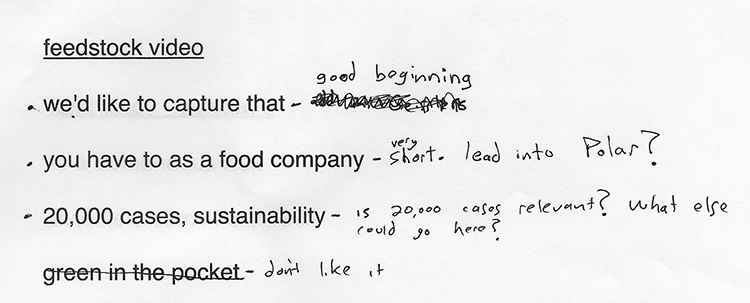 feedstock video
good beginning
• we'd like to capture that -
very
• you have to as a food company - short. lead into Polar?
- 20,000 cases, sustainability - is 20,000 cases relevant? What else
could go here?
green in the pocket - don't like it